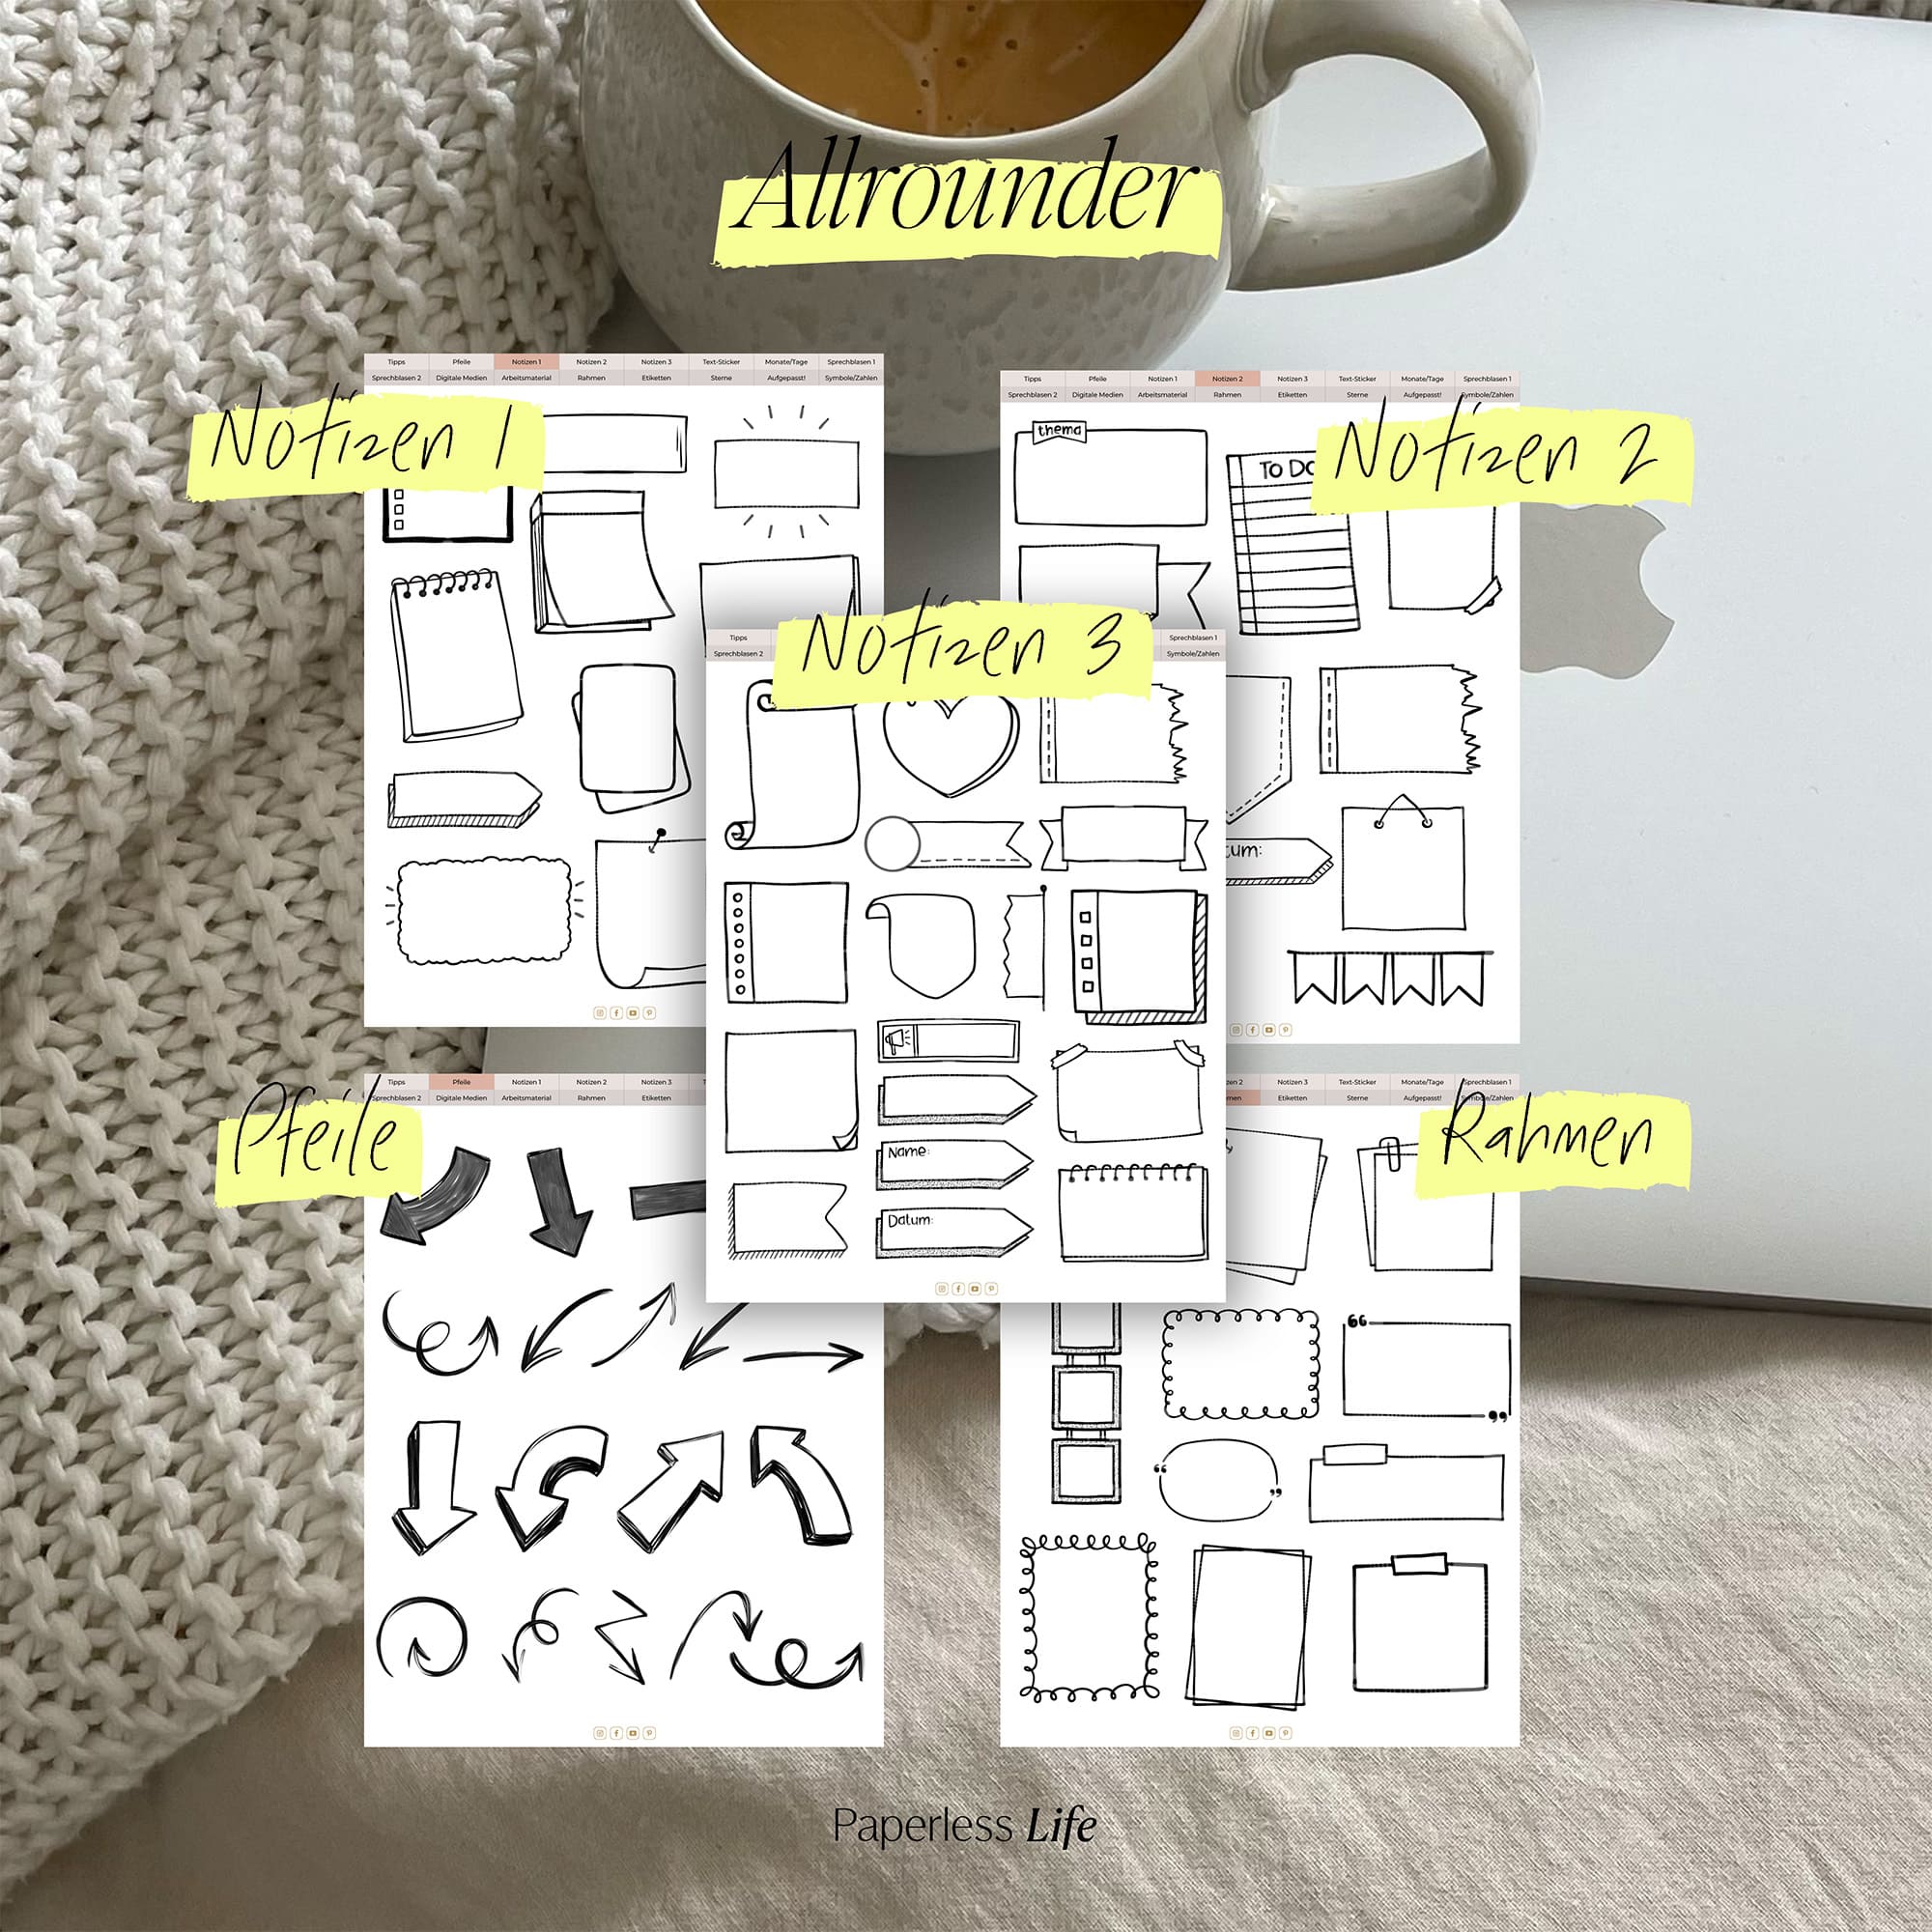 Allrounder
Tipps Pfeile Notizen 1 Notizen 2 Notizen 3 Text-Sticker Monate/Tage Sprechblasen 1
Sprechblasen 2 Digitale Medien Arbeitsmaterial Rahmen Etiketten Sterne Aufgepasst! Symbole/Zahlen
Notizen 1
Tipps Pfeile Notizen 1 Notizen 2 Notizen 3 Text-Sticker Monate/Tage Sprechblasen 1
Sprechblasen 2 Digitale Medien Arbeitsmaterial Rahmen Etiketten Sterne Aufgepasst! Symbole/Zahlen
Notizen 2
thema
TO DO
Tipps Sprechblasen 1
Sprechblasen 2 Symbole/Zahlen
Notizen 3
Name:
Datum:
Tipps Pfeile Notizen 1 Notizen 2 Notizen 3
Sprechblasen 2 Digitale Medien Arbeitsmaterial Rahmen Etiketten
Pfeile
Notizen 3 Text-Sticker Monate/Tage Sprechblasen 1
Etiketten Sterne Aufgepasst! Symbole/Zahlen
Rahmen
Paperless Life